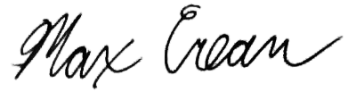 Max Crean